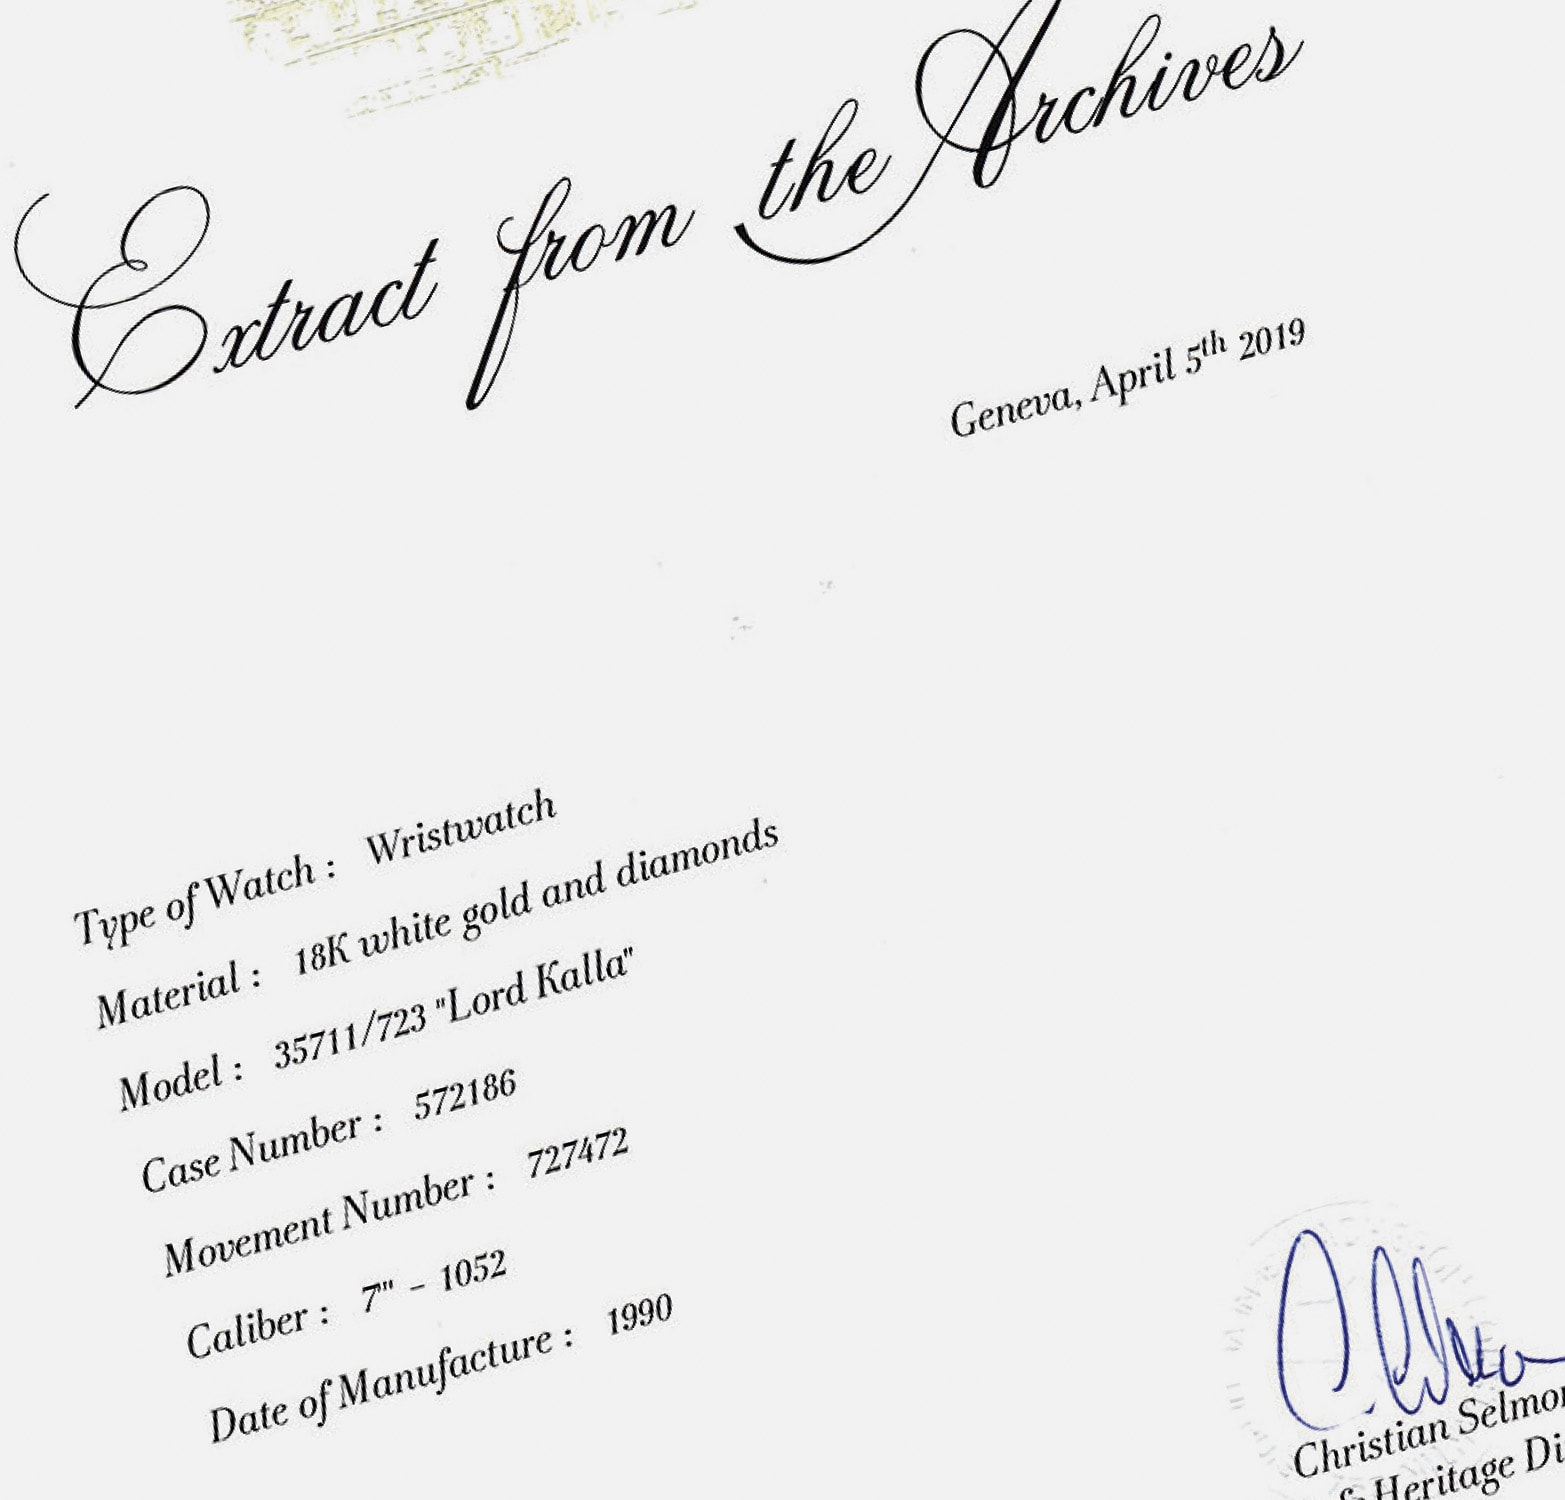 Extract from the Archives
Geneva, April 5th 2019
Type of Watch : Wristwatch
Material : 18K white gold and diamonds
Model : 35711/723 "Lord Kalla"
Case Number : 572186
Movement Number : 727472
Caliber : 7''' - 1052
Date of Manufacture : 1990
Christian Selmo
& Heritage Di